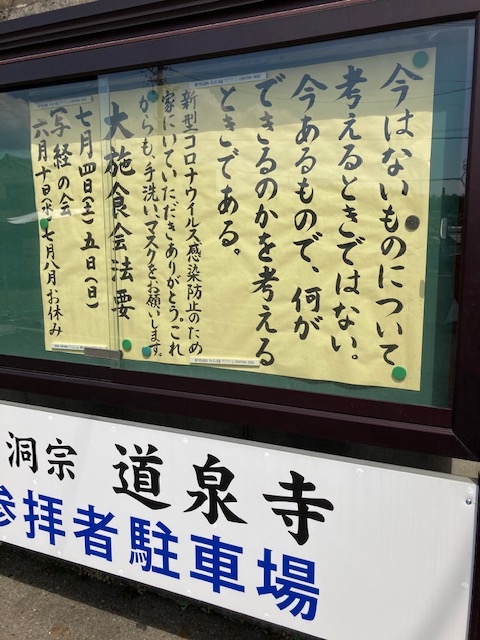 今はないものについて
考えるときではない。
今あるもので、何が
できるのかを考える
ときである。
新型コロナウイルス感染防止のため
家にいていただきありがとう。これ
からも手洗い、マスクをお願いします。
大施食会法要
七月四日(土)五日(日)
写経の会
六月十日(水)七月八月お休み
洞宗 道泉寺
参拝者駐車場